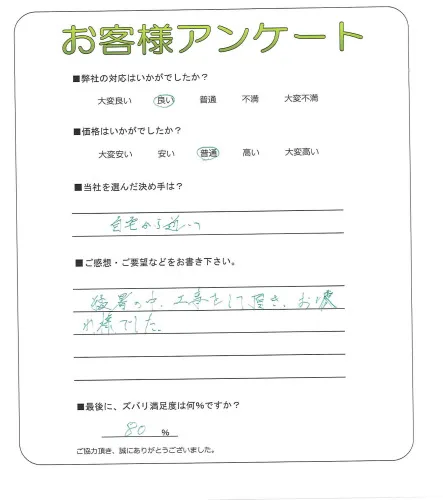 お客様アンケート
■弊社の対応はいかがでしたか?
大変良い 良い 普通 不満 大変不満
■価格はいかがでしたか?
大変安い 安い 普通 高い 大変高い
■当社を選んだ決め手は?
自宅から近い
■ご感想・ご要望などをお書き下さい。
猛暑の中、工事をして頂き、お疲
れ様でした。
■最後に、ズバリ満足度は何%ですか?
80 %
ご協力頂き、誠にありがとうございました。